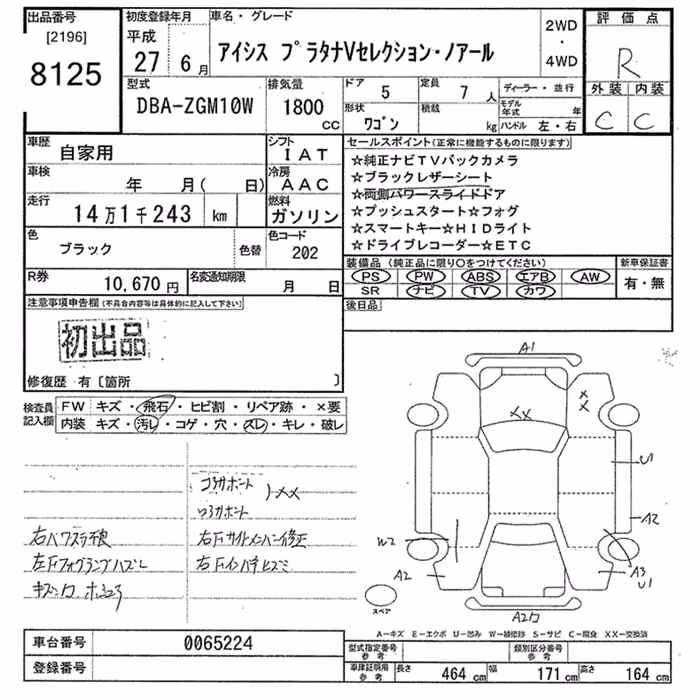 出品番号
[2196]
8125
初度登録年月
平成
27 6 月
車名・グレード
アイシス プラタナVセレクション・ノアール
2WD
・
4WD
評価点
R
外装 内装
C C
型式
DBA-ZGM10W
排気量
1800
CC
ドア
5
定員
7 人
形状
ワゴン
積載
kg
ディーラー・並行
モデル年式 年
ハンドル 左・右
車歴
自家用
シフト
IAT
車検
年 月( 日)
冷房
AAC
走行
14万1千243 km
燃料
ガソリン
色
ブラック
色替
色コード
202
R券
10,670円
名変通知期限
月 日
セールスポイント(正常に機能するものに限ります)
☆純正ナビTVバックカメラ
☆ブラックレザーシート
☆両側パワースライドドア
☆プッシュスタート☆フォグ
☆スマートキー☆HIDライト
☆ドライブレコーダー☆ETC
装備品(純正品に限り○をつけてください)
PS PW ABS エアB AW
SR ナビ TV カワ
新車保証書
有・無
後日品
注意事項申告欄(不具合内容等は具体的に記入して下さい)
初出品
修復歴 有〔箇所 〕
検査員記入欄
FW キズ・飛石・ヒビ割・リペア跡・×要
内装 キズ・汚レ・コゲ・穴・スレ・キレ・破レ
コアサポート
ロアサポート
)XX
右パワスラ不良
左Fフォグランプハズレ
右Fサイドメンバー修正
右Fインパネヒズミ
A1
XX
X
X
U1
A2
W2
A2
A3
U1
スペア
A-キズ E-エクボ U-凹み W-補修跡 S-サビ C-腐食 XX-交換済
車台番号
0065224
登録番号
型式指定番号
参考
類別区分番号
参考
車庫証明用
参考
長さ 464 cm 幅 171 cm 高さ 164 cm